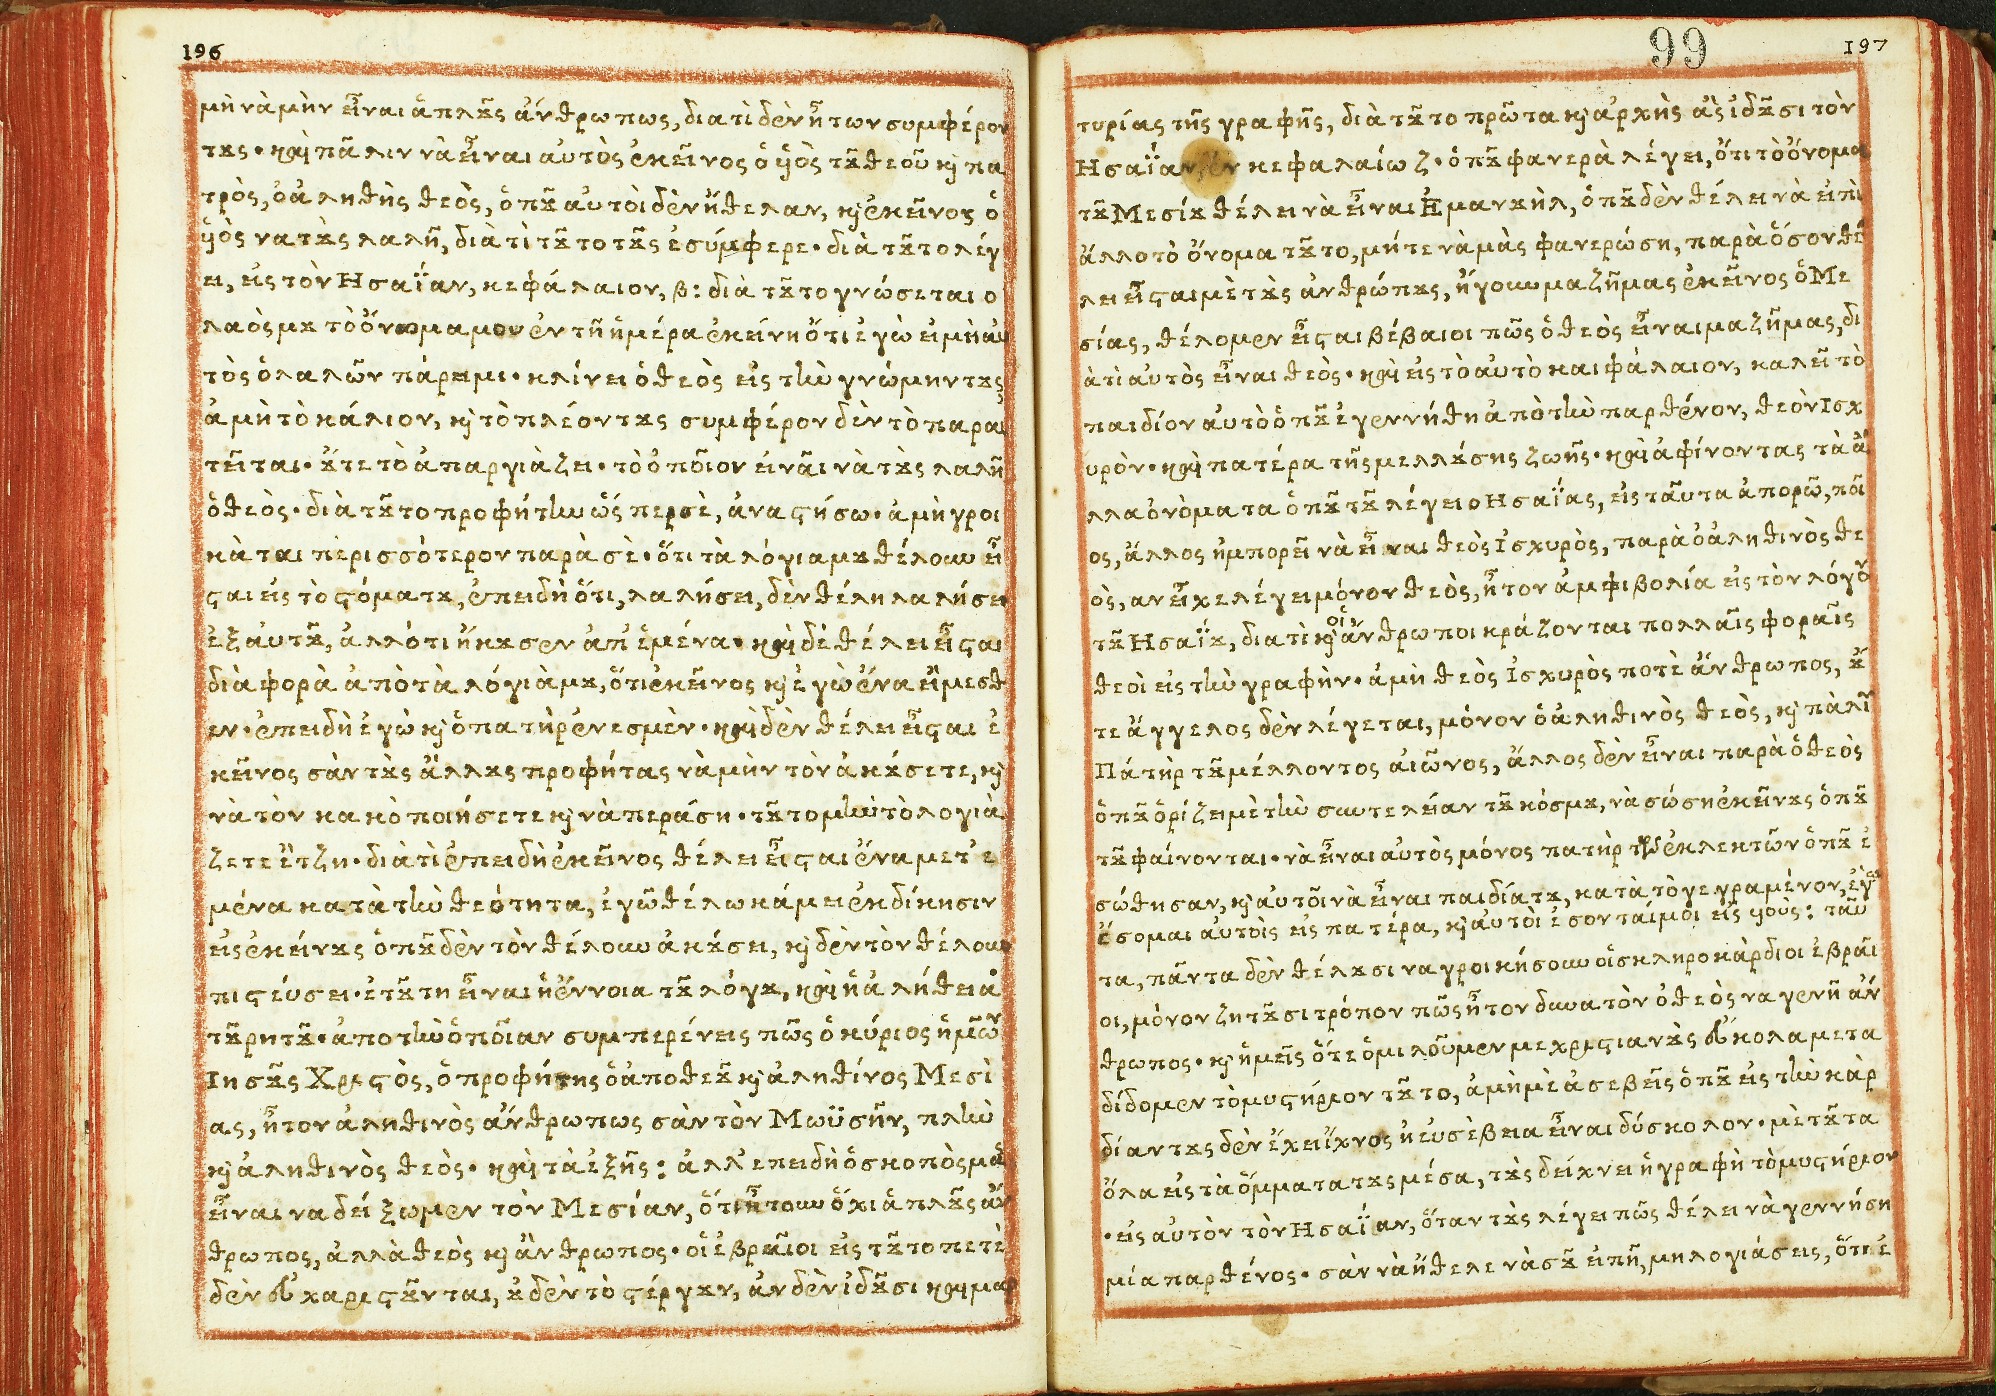 196
μὴ νὰ μὴν εἶναι ἁπλοῦς ἄνθρωπως, διατὶ δὲν ἦτον συμφέρον
τους· καὶ πᾶλιν νὰ εἶναι αὐτὸς ἐκεῖνος ὁ ὑὸς τοῦ θεοῦ κỳ πα
τρὸς, ὁ ἀληθὴς θεὸς, ὁποῦ αὐτοὶ δὲν ἤθελαν, κỳ ἐκεῖνος ὁ
ὑὸς να τοὺς λαλῆ, διὰ τὶ τοῦτο τοῦς ἐσύμφερε· διὰ τοῦτο λέγ
ει, εἰς τὸν Ησαΐαν, κεφάλαιον, β: διὰ τοῦτο γνώσεται ο
λαὸς μου τὸ ὄνομα μου ἐν τῆ ἡμέρα ἐκείνη ὅτι ἐγὼ εἰμὴ αὐ
τὸς ὁ λαλῶν πάρειμι· κλίνει ὁ θεὸς εἰς τὴν γνώμην τους
ἀμὴ τὸ κάλιον, κỳ τὸ πλέον τους συμφέρον δὲν τὸ παραι
τεῖται· οὔτε τὸ ἀπαργιάζει· τὸ ὁποῖον εἰναῖ νὰ τοὺς λαλῆ
ὁ θεὸς· διὰ τοῦτο προφήτην ὥς περ σὲ, ἀναστήσω· ἀμὴ γροι
κὰται πὲρισσότερον παρὰ σὲ· ὅτι τὰ λόγια μου θέλουν εἶ
σται εἰς τὸ στόμα του, ἐπειδὴ ὅτι, λαλήσει, δὲν θέλη λαλήσει
ἐξ αὐτοῦ, ἀλλότι ἤκουσεν ἀπ' ἐμένα· καὶ δὲ θέλει εἶσται
διὰφορὰ ἀπὸ τὰ λόγιὰ μου, ὅτι ἐκεῖνος κỳ ἐγὼ ἕνα εἴμεσθ
εν· ἐπειδὴ ἐγὼ κỳ ὁ πατὴρ ἕν εσμὲν· καὶ δὲν θέλει εἶσται ἐ
κεῖνος σὰν τοὺς ἄλλους προφήτας νὰ μὴν τὸν ἀκούσετε, κỳ
νὰ τὸν κακὸποιήσετε κỳ νὰ περάση· τοῦτο μὴν τὸ λογιὰ
ζετε ἔτζη· διὰ τὶ ἐπειδὴ ἐκεῖνος θέλει εἶσται ἕνα μετ' ε
μένα κατὰ τὴν θεότητα, ἐγὼ θέλω κάμει ἐκδίκησιν
εἰς ἐκείνους ὁποῦ δὲν τὸν θέλουν ἀκούσει, κỳ δὲν τὸν θέλουν
πιστέυσει· ἐτοῦτη εἶναι ἡ ἔννοια τοῦ λόγου, καὶ ἡ ἀλήθεια
τοῦ ρητοῦ· ἀπο τὴν ὁποῖαν συμπερένεις πῶς ὁ κύριος ἡμῶν
Ιησοῦς Χριστὸς, ὁ προφήτης ὁ ἀπο θεοῦ κỳ ἀληθίνος Μεσὶ
ας, ἦτον ἀληθινὸς ἄνθρωπως σὰν τὸν Μωϋσῆν, πλὴν
κỳ ἀληθινὸς θεὸς· καὶ τὰ ἐξῆς: ἀλλ' επειδὴ ὁ σκοπὸς μας
εἶναι να δείξωμεν τὸν Μεσίαν, ὅτι ἦτουν ὄχι ἁπλοῦς ἄν
θρωπος, ἀλλὰ θεὸς κỳ ἄνθρωπος· οἱ ἑβραῖοι εἰς τοῦτο πετὲ
δὲν εὐχαριστοῦνται, οὐδὲν τὸ στέργουν, ἀν δὲν ἰδοῦσι καὶ μαρ
99
197
τυρίας τῆς γραφῆς, διὰ τοῦτο πρῶτα κỳ ἀρχὴς ἂς ἰδοῦσι τὸν
Ησαΐαν, ἐν κεφαλαίω ζ· ὁποῦ φανερὰ λέγει, ὅτι τὸ ὄνομα
τοῦ Μεσίου θέλει νὰ εἶναι Ἐμανουὴλ, ὁποῦ δὲν θέλει νὰ εἰπὶ
ἄλλο τὸ ὄνομα τοῦτο, μήτε νὰ μὰς φανερώση, παρὰ ὅσον θέ
λει εἶσται μὲ τοὺς ἀνθρώπους, ἤγουν μαζῆ μας ἐκεῖνος ὁ Με
σίας, θέλομεν εἶσται βέβαιοι πῶς ὁ θεὸς εἶναι μαζῆ μας, δι
ὰτὶ αὐτὸς εἶναι θεὸς· καὶ εἰς τὸ αὐτὸ καιφάλαιον, καλεῖ τὸ
παιδίον αὐτὸ ὁποῦ ἐγεννήθη ἀπὸ τὴν παρθένον, θεὸν Ισχ
υρὸν· καὶ πατέρα τῆς μελλούσης ζωῆς· καὶ ἀφίνοντας τὰ ἄ
λλα ὀνόματα ὁποῦ τοῦ λέγει ο Ησαΐας, εἰς ταῦτα ἀπορῶ, ποῖ
ος, ἄλλος ἠμπορεῖ νὰ εἶναι θεὸς Ισχυρὸς, παρὰ ὁ ἀληθινὸς θε
ὸς, αν εἶχε λέγει μόνον θεὸς, ἦτον ἀμφιβολία εἰς τὸν λόγον
τοῦ Ησαΐου, διατὶ κỳ οἱ ἄνθρωποι κράζονται πολλαῖς φοραῖς
θεοὶ εἰς τὴν γραφὴν· ἀμὴ θεὸς Ισχυρὸς ποτὲ ἄνθρωπος, οὔ
τε ἄγγελος δὲν λέγεται, μόνον ὁ ἀληθινὸς θεὸς, κỳ πὰλιν
Πάτὴρ τοῦ μέλλοντος αἰῶνος, ἄλλος δὲν εἶναι παρὰ ὁ θεὸς
ὁποῦ ὁρίζει μὲ τὴν συντελείαν τοῦ κόσμου, νὰ σώση ἐκεῖνους ὁποῦ
τοῦ φαίνονται· νὰ εἶναι αὐτὸς μόνος πατὴρ τῶν ἐκλεκτῶν ὁποῦ ἐ
σώθησαν, κỳ αὐτοῖ νὰ εἶναι παιδία του, κατὰ τὸ γεγραμένον, ἐγὼ
ἔσομαι ἀυτοῖς εἰς πατέρα, κỳ αὐτοὶ ἔσονταί μοι εἰς ὑοὺς: ταῦ
τα, πάντα δὲν θέλουσι να γροικήσουν οἱ σκληροκὰρδιοι ἑβραῖ
οι, μόνον ζητοῦσι τρόπον πῶς ἦτον δυνατὸν ὁ θεὸς να γενῆ ἄν
θρωπος· κỳ ἡμεῖς ὅτε ὁμιλοῦμεν με χριστιανοὺς εὔκολα μετα
δίδομεν τὸ μυστήριον τοῦτο, ἀμὴ μὲ ἀσεβεῖς ὁποῦ εἰς τὴν κὰρ
δίαν τους δὲν ἔχει ἴχνος ἡ εὐσὲβεια εἶναι δύσκολον· μὲ τοῦτα
ὅλα εἰς τὰ ὄμματα τους μέσα, τοὺς δείχνει ἡ γραφὴ τὸ μυστήριον
· εἰς αὐτὸν τὸν Ησαΐαν, ὅταν τοὺς λέγει πῶς θέλει νὰ γεννήση
μία παρθένος· σὰν νὰ ἤθελε νὰ σοῦ εἰπῆ, μη λογιάσεις, ὅτι ἐ